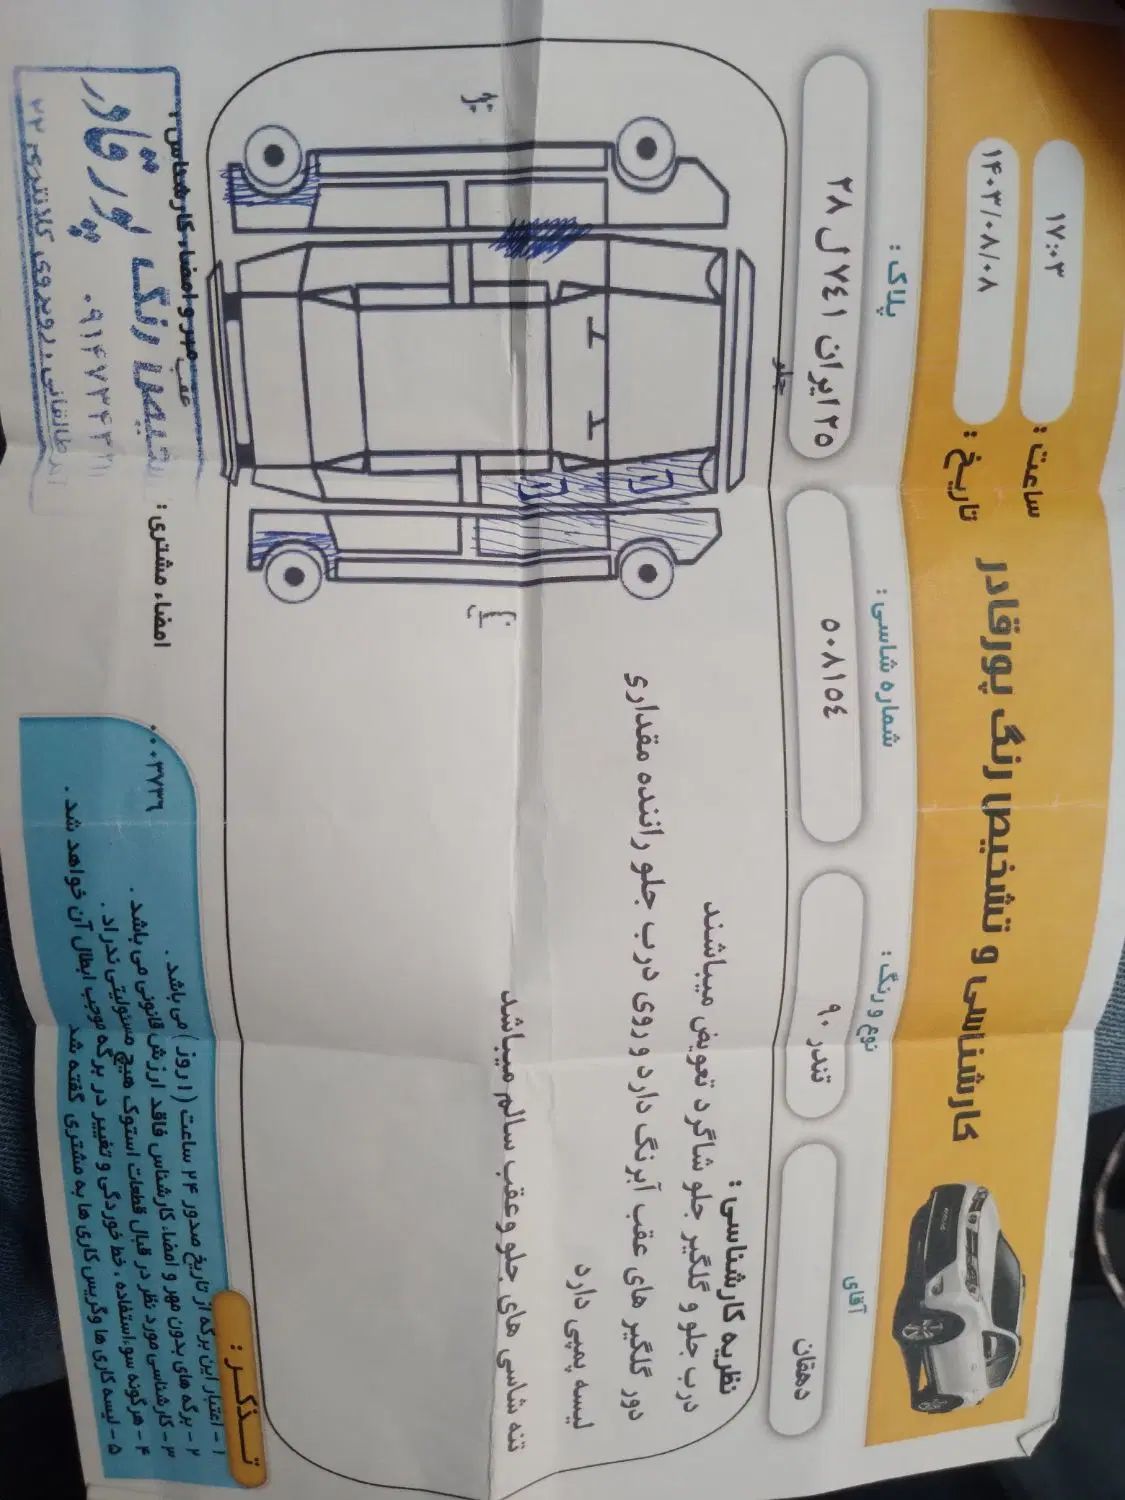 کارشناسی و تشخیص رنگ پورقادر
ساعت :
۱۷:۰۳
تاریخ :
۱۴۰۳/۰۸/۰۸
آقای
دهقان
نوع و رنگ :
تندر ۹۰
شماره شاسی :
۵۰۸۱۵٤
پلاک :
۲۵ ایران ۷٤۱ ل ۲۸
نظریه کارشناسی :
درب جلو و گلگیر جلو شاگرد تعویض میباشند
دور گلگیر های عقب آبرنگ دارد و روی درب جلو راننده مقداری
لیسه پمپی دارد
تنه شاسی های جلو و عقب سالم میباشد
جلو
عقب
تذکر :
۱ - اعتبار این برگه از تاریخ صدور ۲۴ ساعت (۱ روز) می باشد .
۲ - برگه های بدون مهر و امضاء کارشناس فاقد ارزش قانونی می باشد .
۳ - کارشناسی مورد نظر در قبال قطعات استوک هیچ مسئولیتی ندارد .
۴ - هرگونه سوءاستفاده ، خط خوردگی و تغییر در برگه موجب ابطال آن خواهد شد .
۵ - لیسه کاری ها و گریس کاری ها به مشتری گفته شد
۰۰۰۳۷۳۶
امضاء مشتری :
مهر و امضاء کارشناس :
تشخیص رنگ
پورقادر
طالقانی ، روبروی کلانتری ۲۲